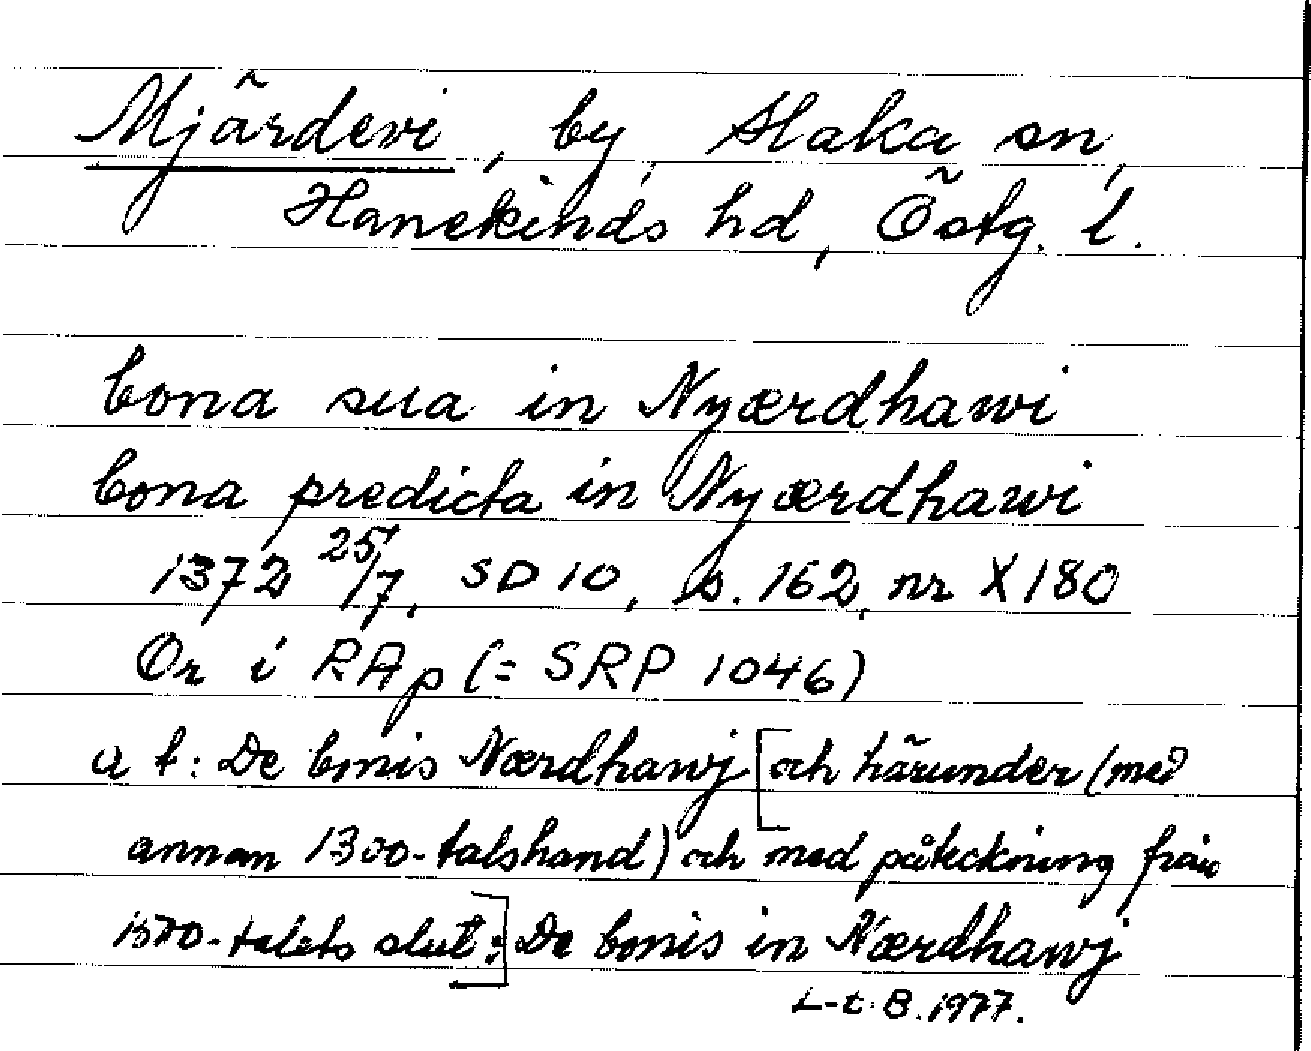 Mjärdevi, by, Slaka sn,
Hanekinds hd, Östg. l.
bona sua in Nyærdhawi
bona predicta in Nyærdhawi
1372 25/7, SD 10, s. 162, nr X180
Or i RAp (= SRP 1046)
a t: De bonis Nærdhawj [och härunder (med
annan 1300-talshand) och med påteckning från
1570-talets slut:] De bonis in Nærdhawj
L-t. B. 1977.